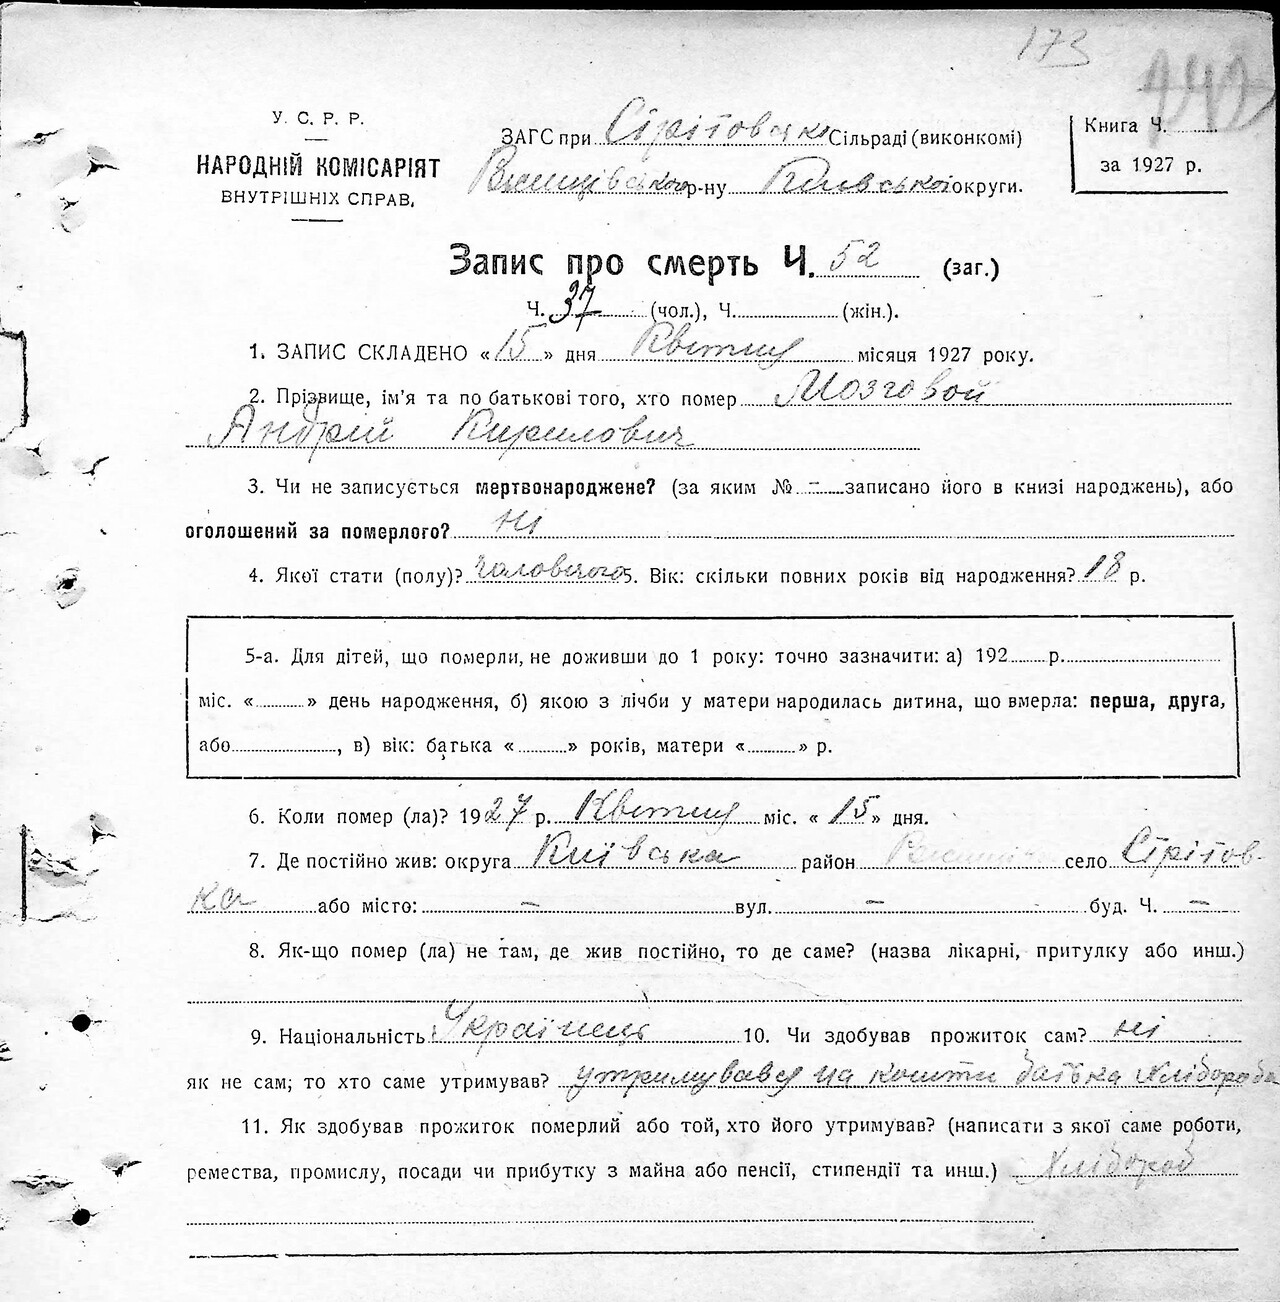 173
242
У. С. Р. Р.
НАРОДНІЙ КОМІСАРІЯТ
ВНУТРІШНІХ СПРАВ.
ЗАГС при Стрітовській Сільраді (виконкомі)
р-ну Київської округи.
Книга Ч.
за 1927 р.
Запис про смерть Ч. 52 (заг.)
Ч. 37 (чол.), Ч. (жін.).
1. ЗАПИС СКЛАДЕНО « 15 » дня Квітня місяця 1927 року.
2. Прізвище, ім'я та по батькові того, хто помер Мозговой
Андрій Кирилович
3. Чи не записується мертвонароджене? (за яким № – записано його в книзі народжень), або
оголошений за померлого? ні
4. Якої стати (полу)? чоловічого 5. Вік: скільки повних років від народження? 18 р.
5-а. Для дітей, що померли, не доживши до 1 року: точно зазначити: а) 192 р.
міс. « » день народження, б) якою з лічби у матери народилась дитина, що вмерла: перша, друга,
або , в) вік: батька « » років, матери « » р.
6. Коли помер (ла)? 1927 р. Квітня міс. « 15 » дня.
7. Де постійно жив: округа Київська район село Стрітов-
ка або місто: – вул. – буд. Ч. –
8. Як-що помер (ла) не там, де жив постійно, то де саме? (назва лікарні, притулку або инш.)
9. Національність Українець 10. Чи здобував прожиток сам? ні
як не сам; то хто саме утримував? утримувався на кошти батька хлібороба
11. Як здобував прожиток померлий або той, хто його утримував? (написати з якої саме роботи,
ремества, промислу, посади чи прибутку з майна або пенсії, стипендії та инш.) Хлібороб